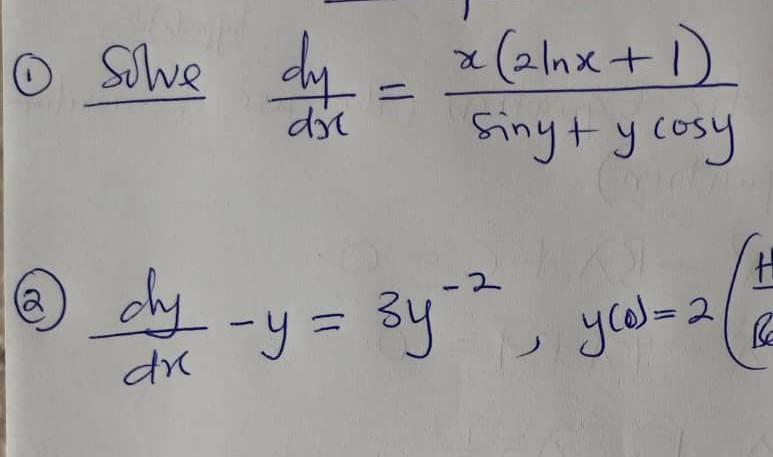 ① Solve dy/dx = x(2lnx + 1)/(siny + y cosy)
② dy/dx - y = 3y^-2, y(0) = 2 (